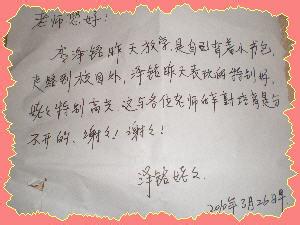 老师您好:
李泽铭昨天放学是自己背着小书包
走路到校外,泽铭昨天表现的特别好,
姥々特别高兴 这与各位老师的辛勤培育是分
不开的、谢々!谢々!
泽铭姥々
2010年3月26日早